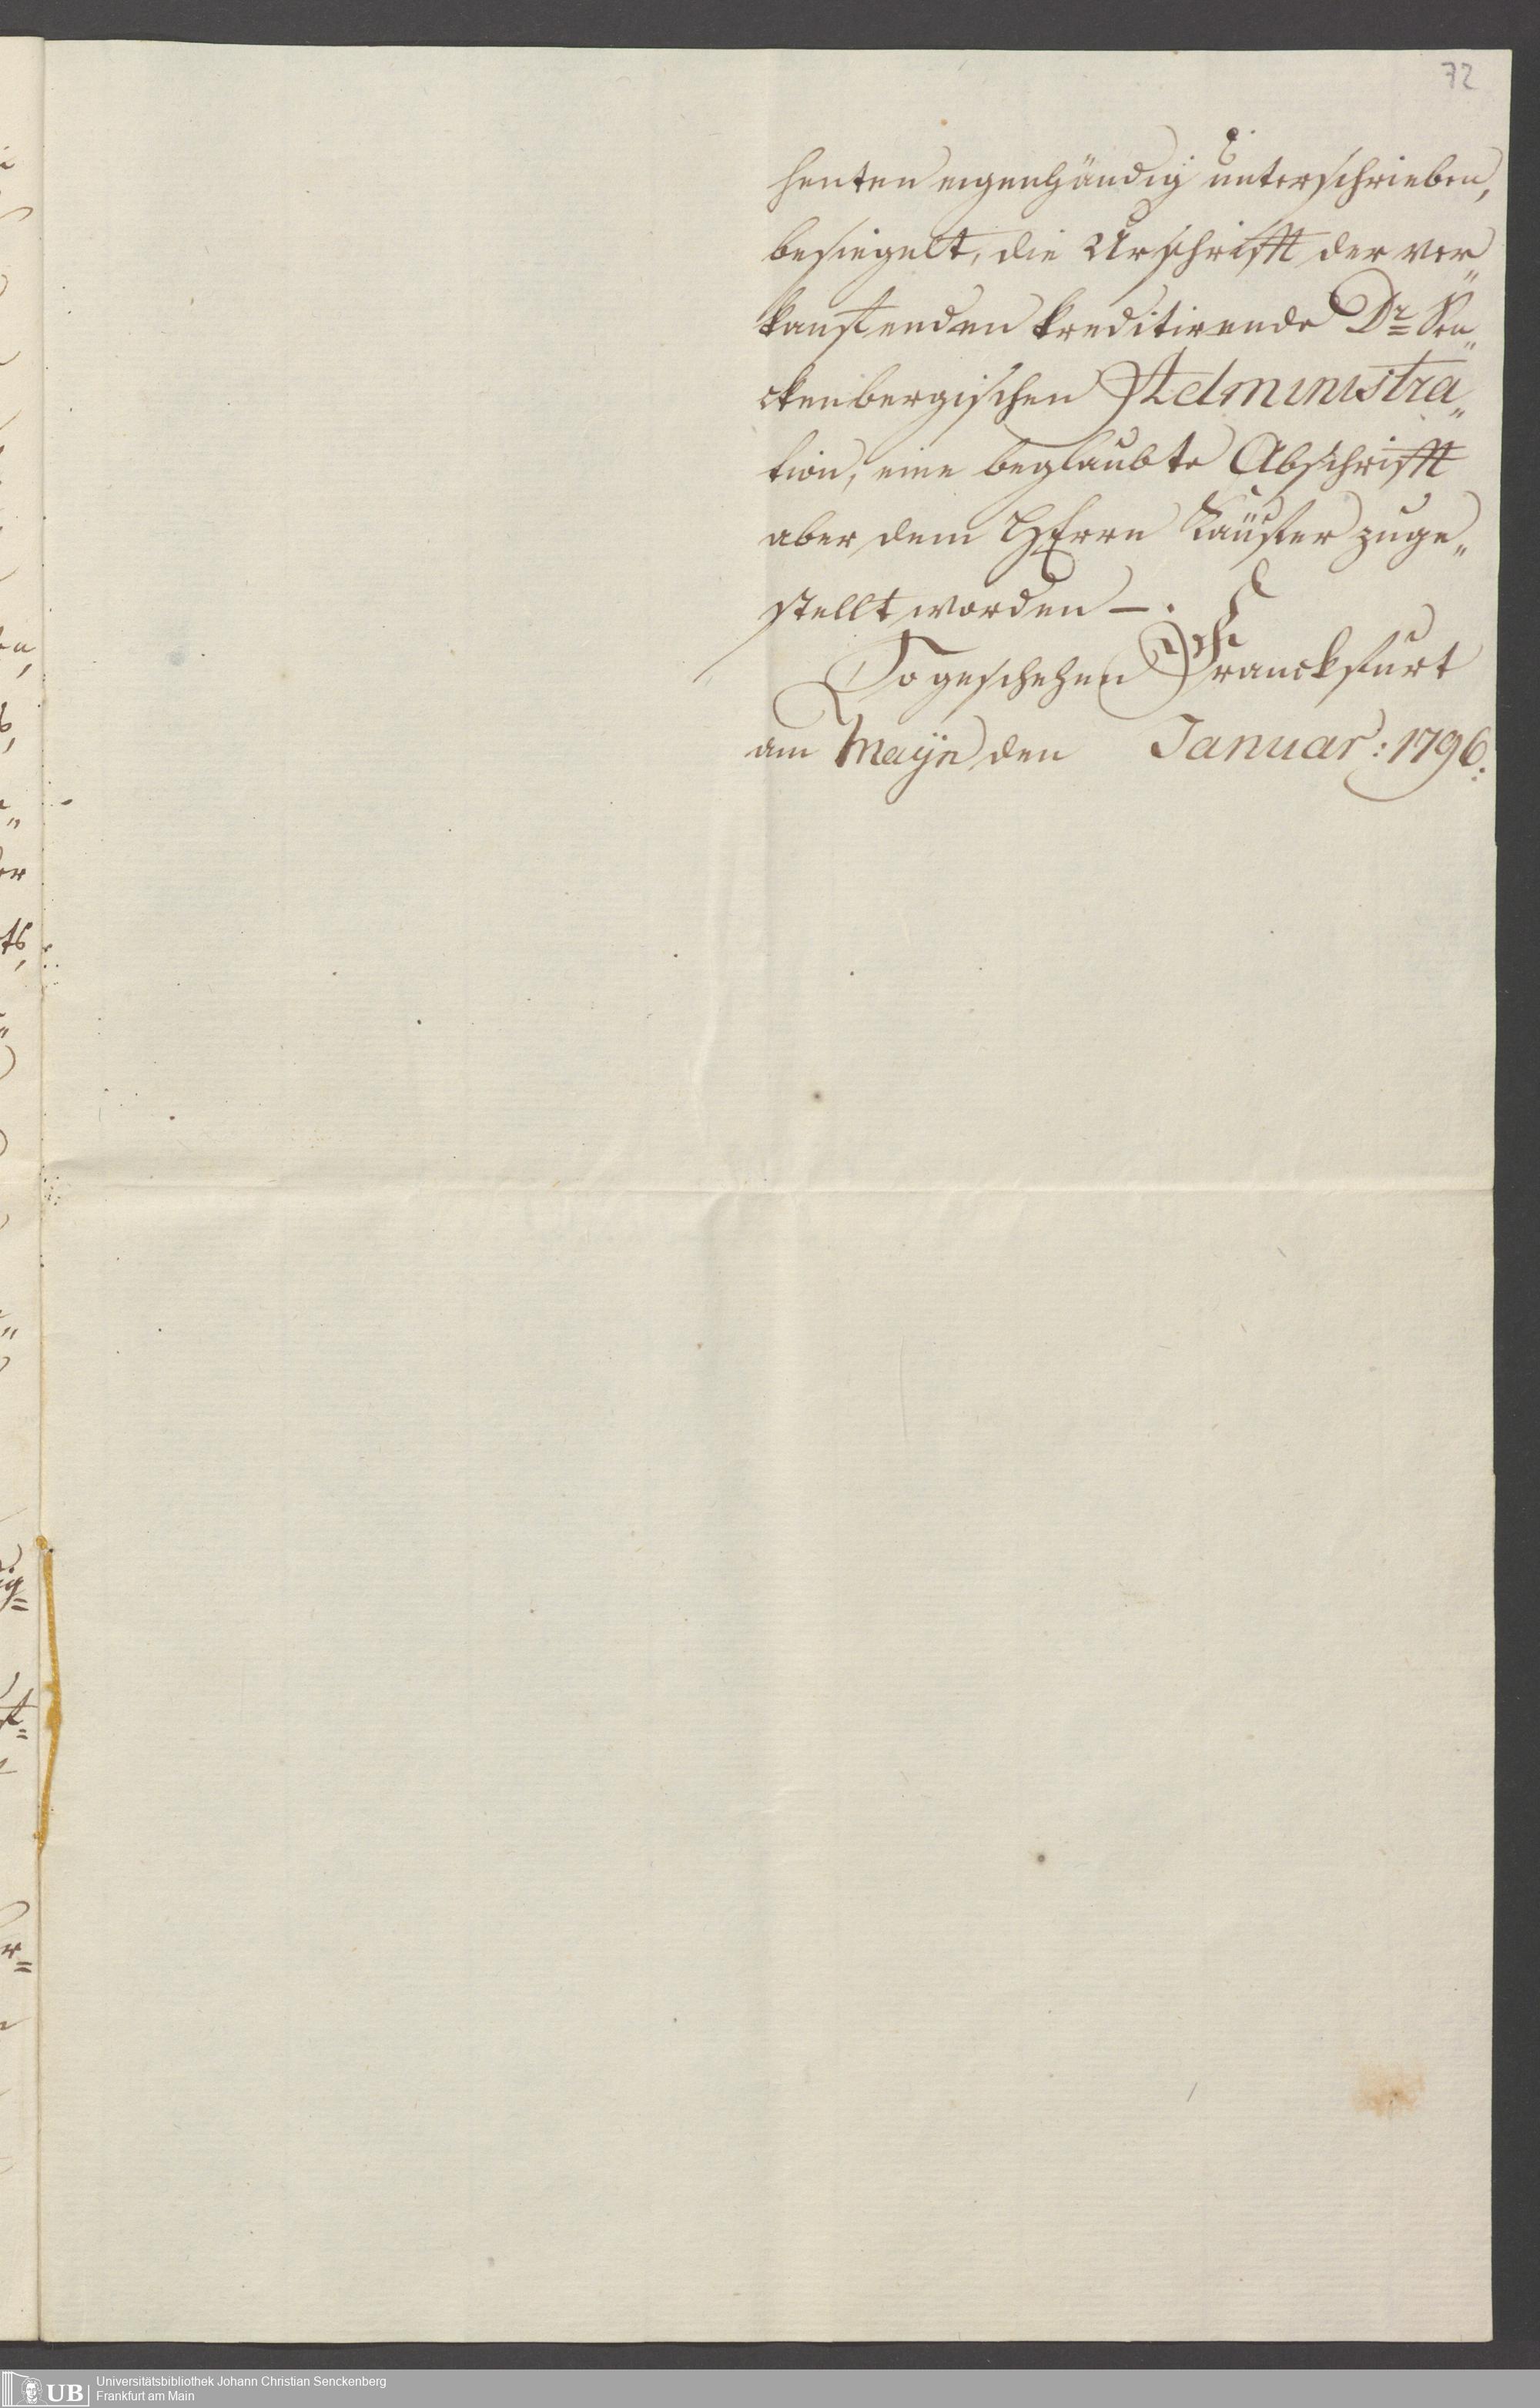 72
henten eigenhändig unterschrieben,
besiegelt, die Urschrifft der ver„
kaufenden kreditirende Dr Sen„
ckenbergischen Administra„
tion, eine beglaubte Abschrifft
aber dem HErrn Käufer zuge„
stellt worden —.
So geschehen Franckfurt
am Mayn den Januar: 1796.
UB
Universitätsbibliothek Johann Christian Senckenberg
Frankfurt am Main